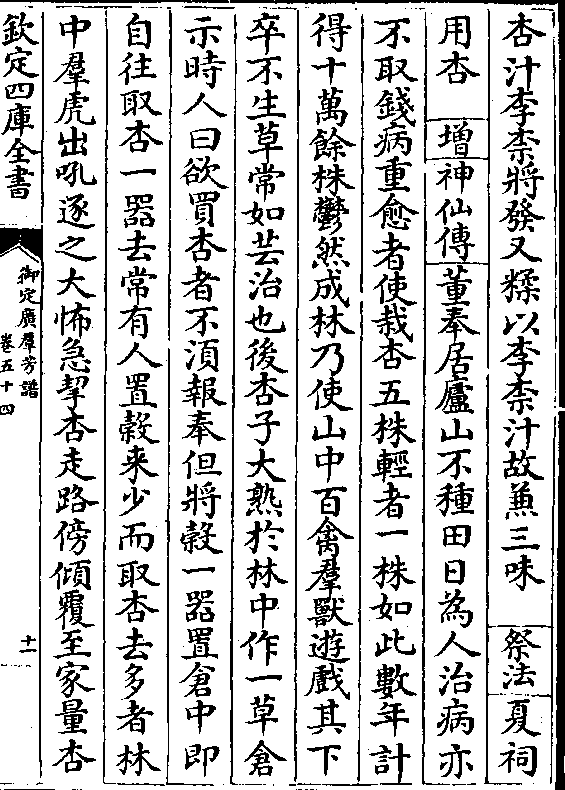 杏汁李柰將發又糅以李柰汁故兼三味　祭法　夏祠
用杏　增　神仙傳　董奉居廬山不種田日為人治病亦
不取錢病重愈者使栽杏五株輕者一株如此數年計
得十萬餘株鬱然成林乃使山中百禽羣獸遊戲其下
卒不生草常如芸治也後杏子大熟於林中作一草倉
示時人曰欲買杏者不須報奉但將穀一器置倉中即
自往取杏一器去常有人置榖来少而取杏去多者林
中羣虎出吼逐之大怖急挈杏走路傍傾覆至家量杏
欽定四庫全書
御定廣羣芳譜
卷五十四
十一